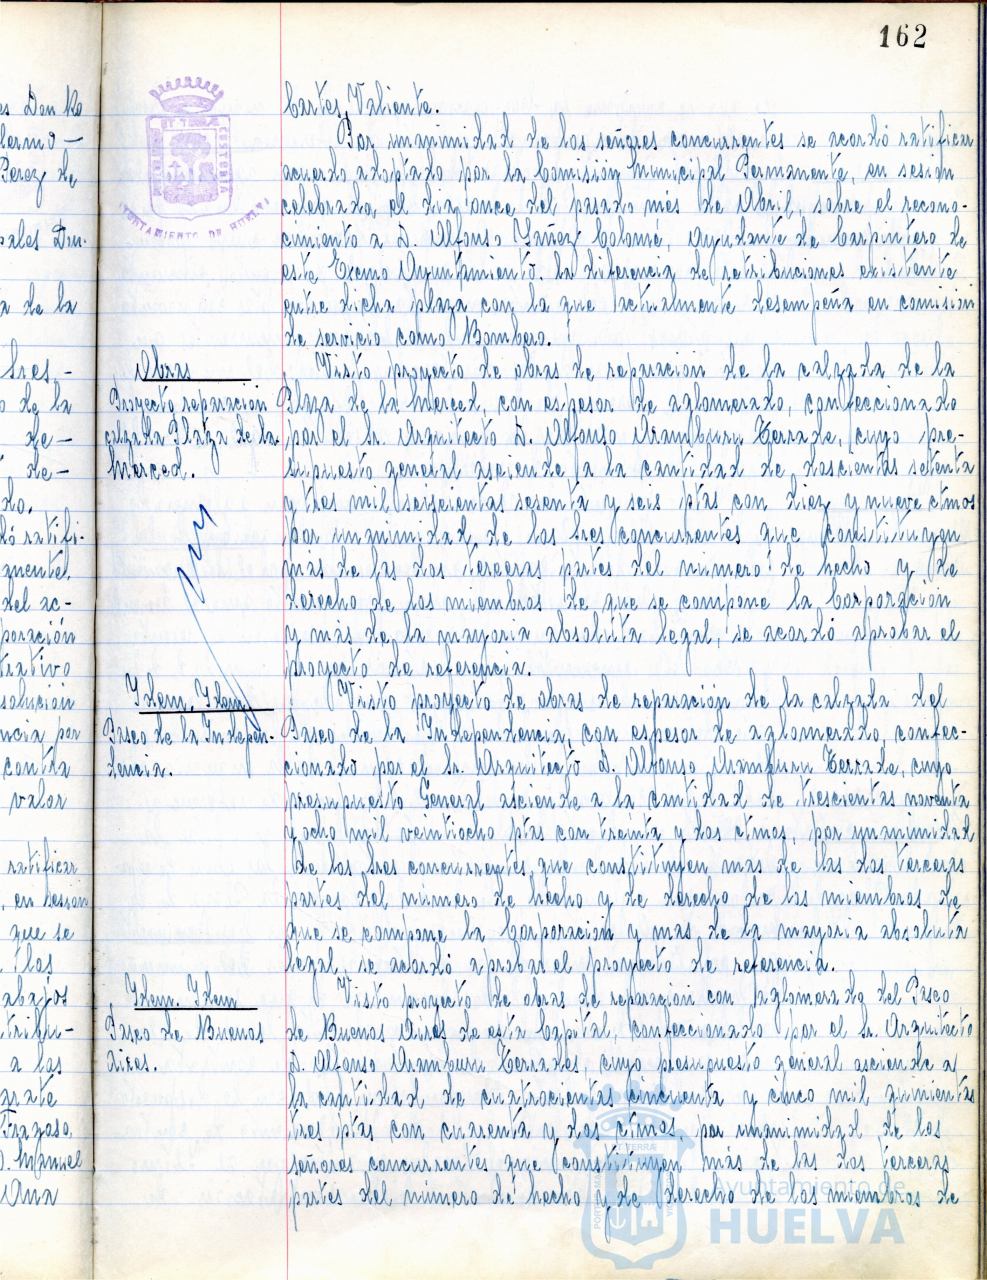 162
es Don Ra
lermo —
Perez de
pales Don.
a de la
Sres.—
o de la
de—
de—
do.
ó ratifi-
mente,
del ac-
poración
trativo
solución
ncia por
contra
valor
ratificar
, en sesión
que se
los
abajos
tribu-
a los
grate
Fragoso,
D. Manuel
Ana
AYUNTAMIENTO DE HUELVA
Cartes Valiente.
Por unanimidad de los señores concurrentes se acordó ratificar
acuerdo adoptado por la Comisión Municipal Permanente, en sesión
celebrada, el dia once del pasado més de Abril, sobre el recono-
cimiento a D. Alfonso Yañez Colomé, Ayudante de Carpintero de
este Excmo Ayuntamiento. la diferencia de retribuciones existente
entre dicha plaza con la que actualmente desempeña en comisión
de servicio como Bombero.
Obras
Proyecto reparación
calzada Plaza de la
Merced.
Visto proyecto de obras de reparación de la calzada de la
Plaza de la Merced, con espesor de aglomerado, confeccionado
por el Sr. Arquitecto D. Alfonso Aramburu Terrade, cuyo pre-
supuesto general asciende a la cantidad de doscientas setenta
y tres mil seiscientas sesenta y seis ptas con diez y nueve ctmos
por unanimidad de los Sres concurrentes que constituyen
más de las dos terceras partes del número de hecho y de
derecho de los miembros de que se compone la Corporación
y más de la mayoria absoluta legal, se acordó aprobar el
proyecto de referencia.
Idem, Idem
Paseo de la Indepen-
dencia.
Visto proyecto de obras de reparación de la calzada del
Paseo de la Independencia, con espesor de aglomerado, confec-
cionado por el Sr. Arquitectó D. Alfonso Aramburu Terrade, cuyo
presupuesto General asciende a la cantidad de trescientas noventa
y ocho mil veintiocho ptas con treinta y dos ctmos, por unanimidad
de los Sres concurrentes, que constituyen mas de las dos terceras
partes del número de hecho y de derecho de los miembros de
que se compone la Corporación y mas de la mayoria absoluta
legal, se acordó aprobar el proyecto de referencia.
Idem. Idem
Paseo de Buenos
Aires.
Visto proyecto de obras de reparación con aglomerado del Paseo
de Buenos Aires de esta Capital, confeccionado por el Sr. Arquitecto
D. Alfonso Aramburu Terrades, cuyo presupuesto general asciende a
la cantidad de cuatrocientas cincuenta y cinco mil quinientas
tres ptas con cuarenta y dos ctmos, por unanimidad de los
señores concurrentes que constituyen más de las dos terceras
partes del número de hecho y de derecho de los miembros de
Ayuntamiento de
HUELVA